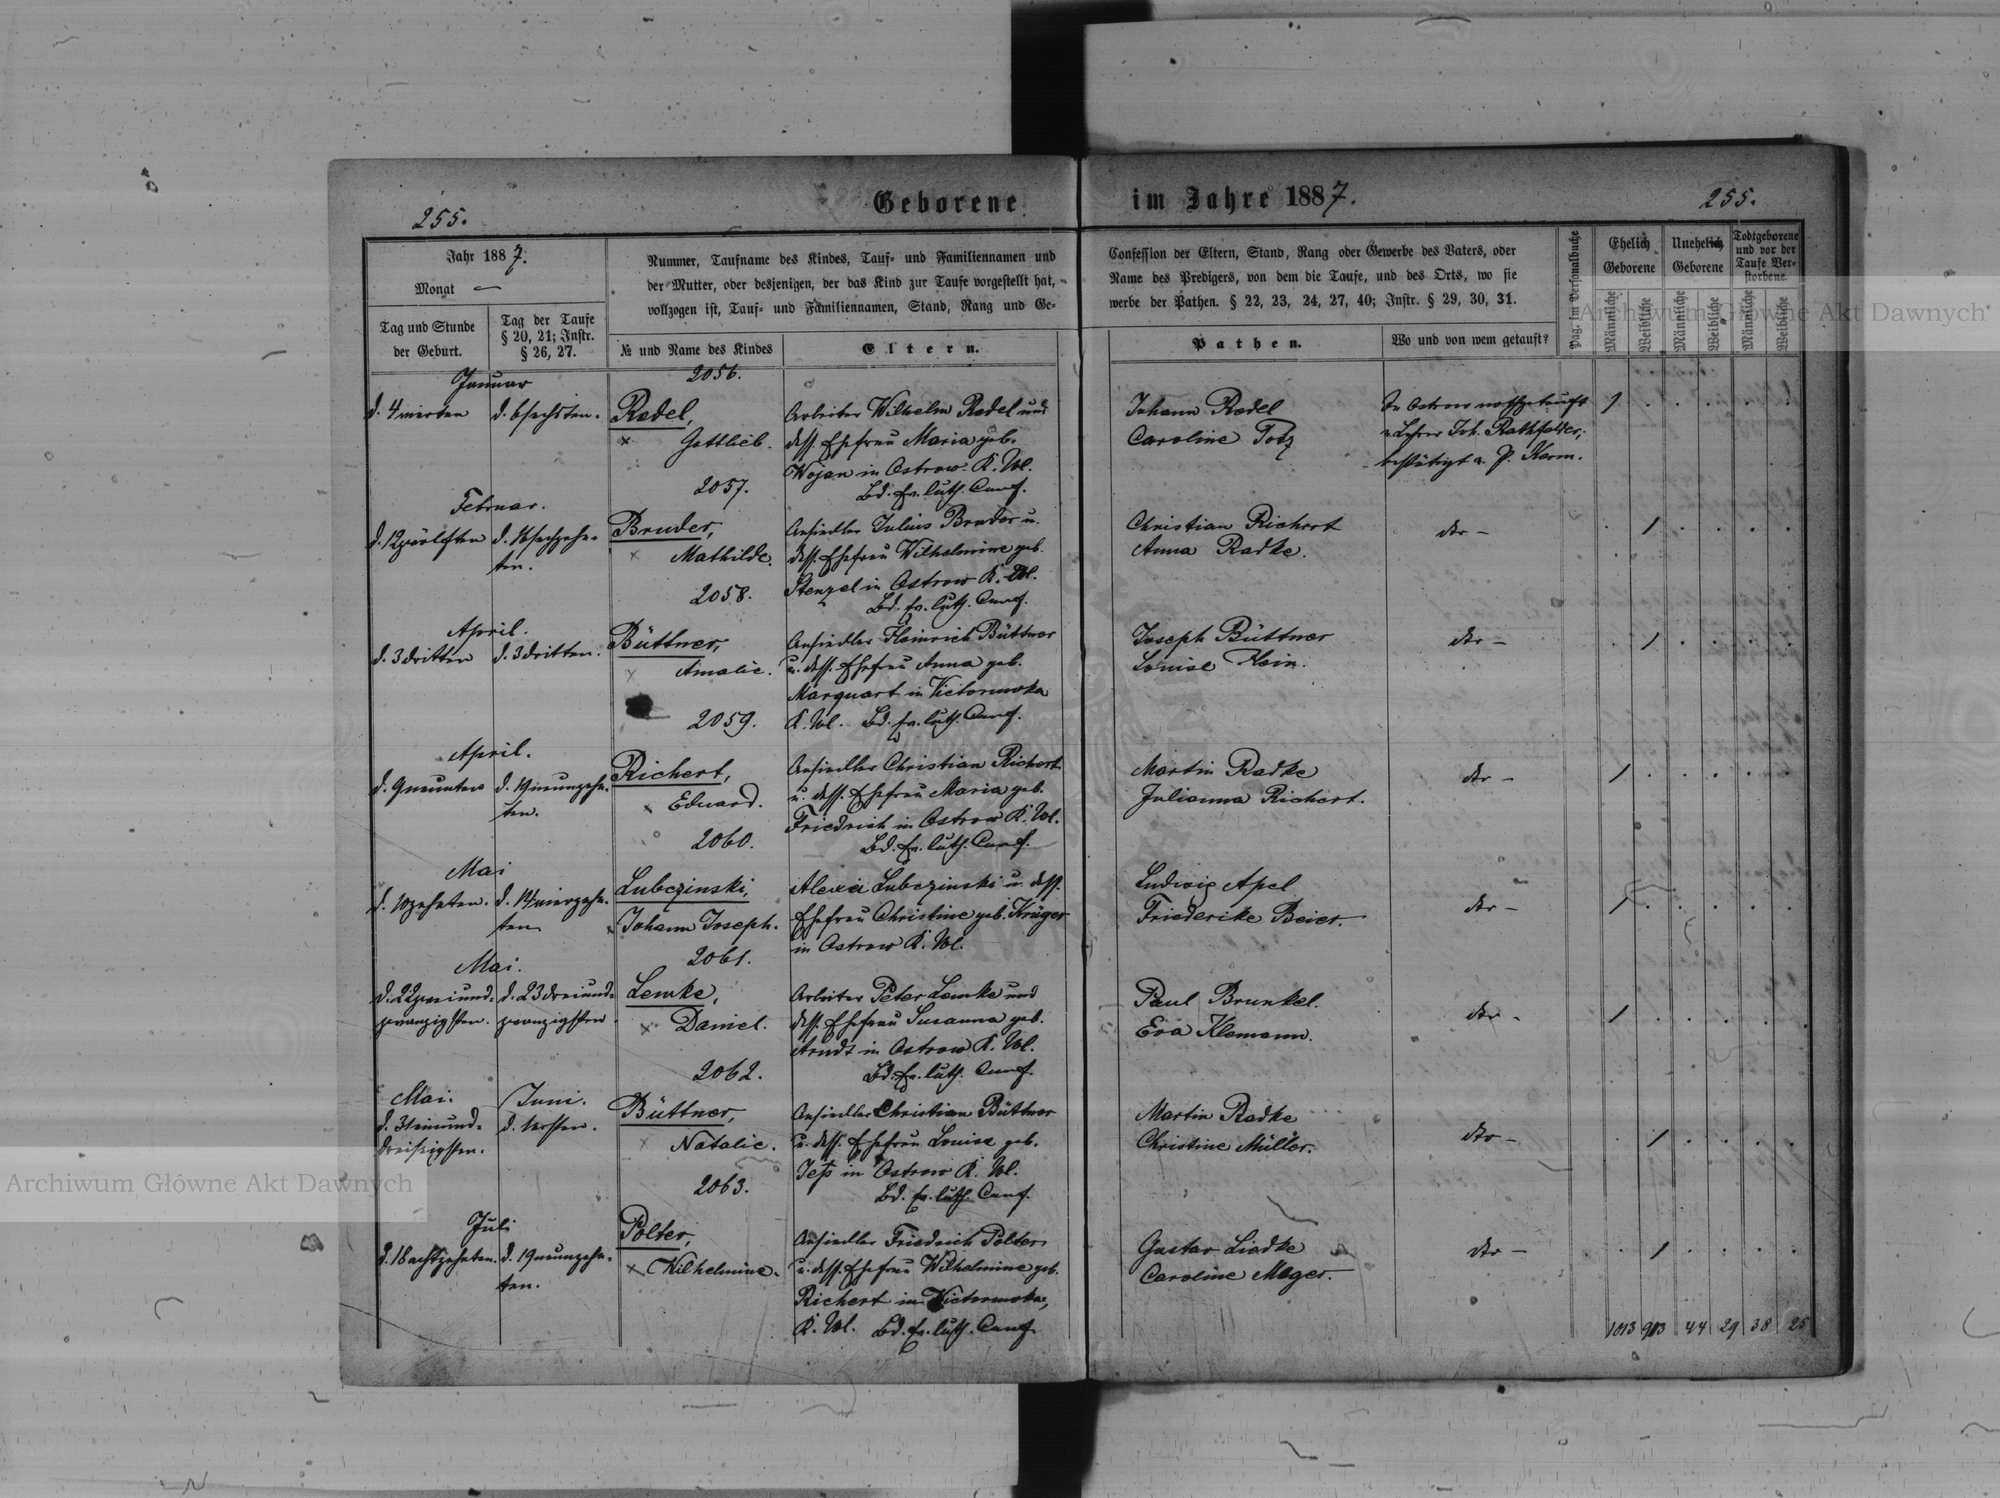 255.
Geborene
im Jahre 1887.
255.
Jahr 1887.
Monat —
Tag und Stunde
der Geburt.
Tag der Taufe
§ 20, 21; Instr.
§ 26, 27.
Nummer, Taufname des Kindes, Tauf- und Familiennamen und
der Mutter, oder desjenigen, der das Kind zur Taufe vorgestellt hat,
vollzogen ist, Tauf- und Familiennamen, Stand, Rang und Ge-
№ und Name des Kindes
Eltern.
Confession der Eltern, Stand, Rang oder Gewerbe des Vaters, oder
Name des Predigers, von dem die Taufe, und des Orts, wo sie
werbe der Pathen. § 22, 23, 24, 27, 40; Instr. § 29, 30, 31.
Pathen.
Wo und von wem getauft?
Pag. im Personalbuche
Ehelich
Geborene
Unehelich
Geborene
Todtgeborene
und vor der
Taufe Ver-
storbene.
Männliche
Weibliche
Männliche
Weibliche
Männliche
Weibliche
Januar
d. 4 vierten
d. 6 sechsten.
2056.
Radel,
Gottlieb.
Arbeiter Wilhelm Radel und
dess. Ehefrau Maria geb.
Wojan in Ostrow K. Wl.
Bd. Ev. luth. Conf.
Johann Radel
Caroline Totz
In Ostrow nothgetauft
v. Lehrer Joh. Rathfelder,
bestätigt v. P. Karm.
1
Februar.
d. 12 zwölften
d. 16 sechzehn-
ten.
2057.
Bruder,
Mathilde.
Ansiedler Julius Bruder u.
dess. Ehefrau Wilhelmine geb.
Stenzel in Ostrow K. Wl.
Bd. Ev. luth. Conf.
Christian Richert
Anna Radke.
dto –
1
April.
d. 3 dritten
d. 3 dritten.
2058.
Büttner,
Amalie.
Ansiedler Heinrich Büttner
u. dess. Ehefrau Anna geb.
Marquart in Victorowka
K. Wl. Bd. Ev. luth. Conf.
Joseph Büttner
Louise Klein.
dto –
1
April.
d. 9 neunten
d. 19 neunzehn-
ten.
2059.
Richert,
Eduard.
Ansiedler Christian Richert
u. dess. Ehefrau Maria geb.
Friedrich in Ostrow K. Wl.
Bd. Ev. luth. Conf.
Martin Radke
Julianna Richert.
dto –
1
Mai
d. 10 zehnten.
d. 14 vierzehn-
ten
2060.
Lubczinski,
Johann Joseph.
Alexei Lubczinski u. dess.
Ehefrau Christine geb. Krüger
in Ostrow K. Wl.
Ludwig Apel
Friederike Beier.
dto –
1
Mai.
d. 22 zweiund-
zwanzigsten.
d. 23 dreiund-
zwanzigsten
2061.
Lemke,
Daniel.
Arbeiter Peter Lemke und
dess. Ehefrau Susanna geb.
Arndt in Ostrow K. Wl.
Bd. Ev. luth. Conf.
Paul Brunkel.
Eva Klemann.
dto –
1
Mai.
d. 31 einund-
dreißigsten.
Juni.
d. 1 ersten.
2062.
Büttner,
Natalie.
Ansiedler Christian Büttner
u. dess. Ehefrau Louise geb.
Jeß in Ostrow K. Wl.
Bd. Ev. luth. Conf.
Martin Radke
Christine Müller.
dto –
1
Juli
d. 18 achtzehnten.
d. 19 neunzehn-
ten.
2063.
Polter,
Wilhelmine.
Ansiedler Friedrich Polter
u. dess. Ehefrau Wilhelmine geb.
Richert in Victorowka,
K. Wl. Bd. Ev. luth. Conf.
Gustav Liedke
Caroline Mager.
dto –
1
1013 913 44 29 38 25
Archiwum Główne Akt Dawnych
Archiwum Główne Akt Dawnych